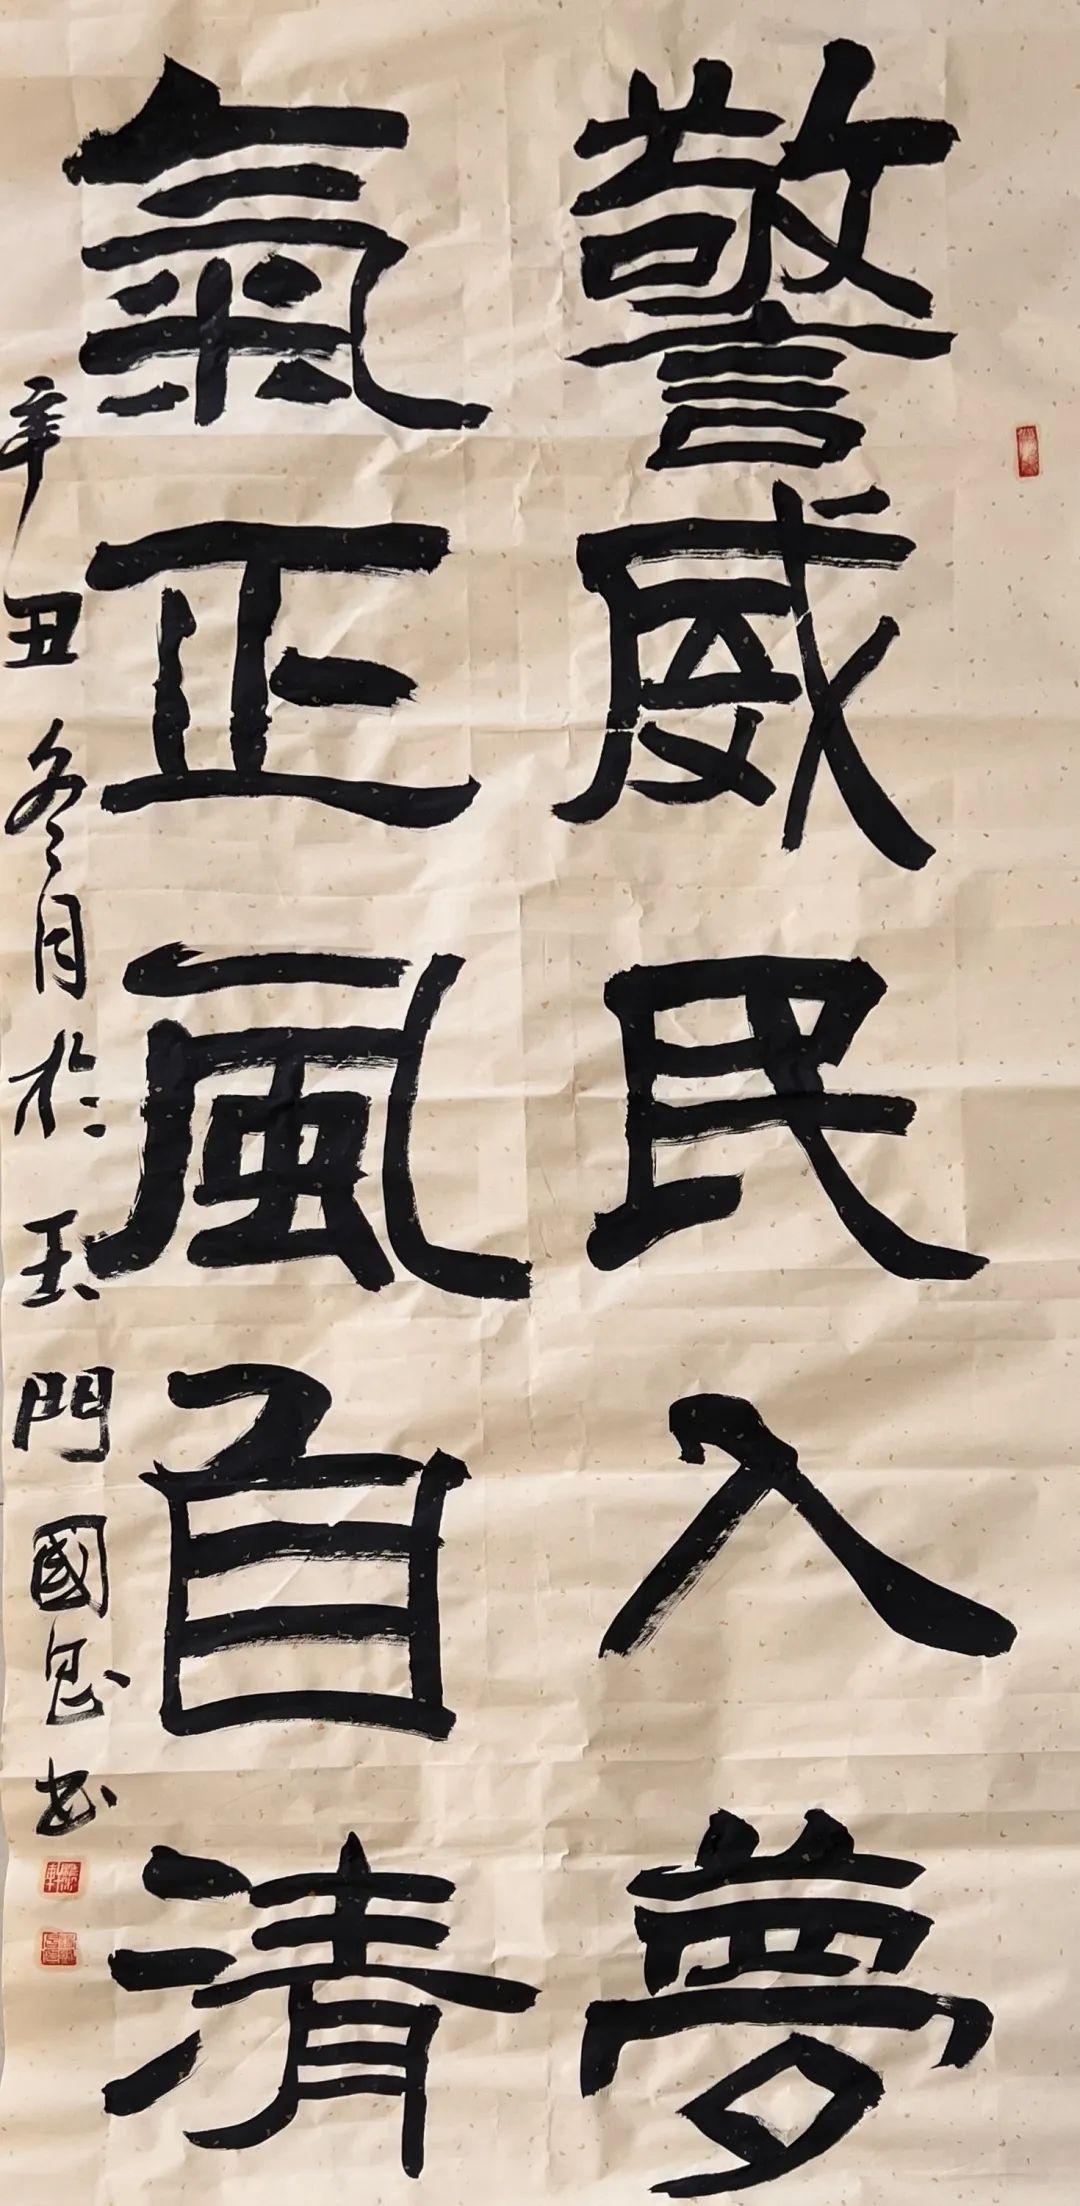 警威民入夢
氣正風自清
辛丑冬月於玉門國忠书